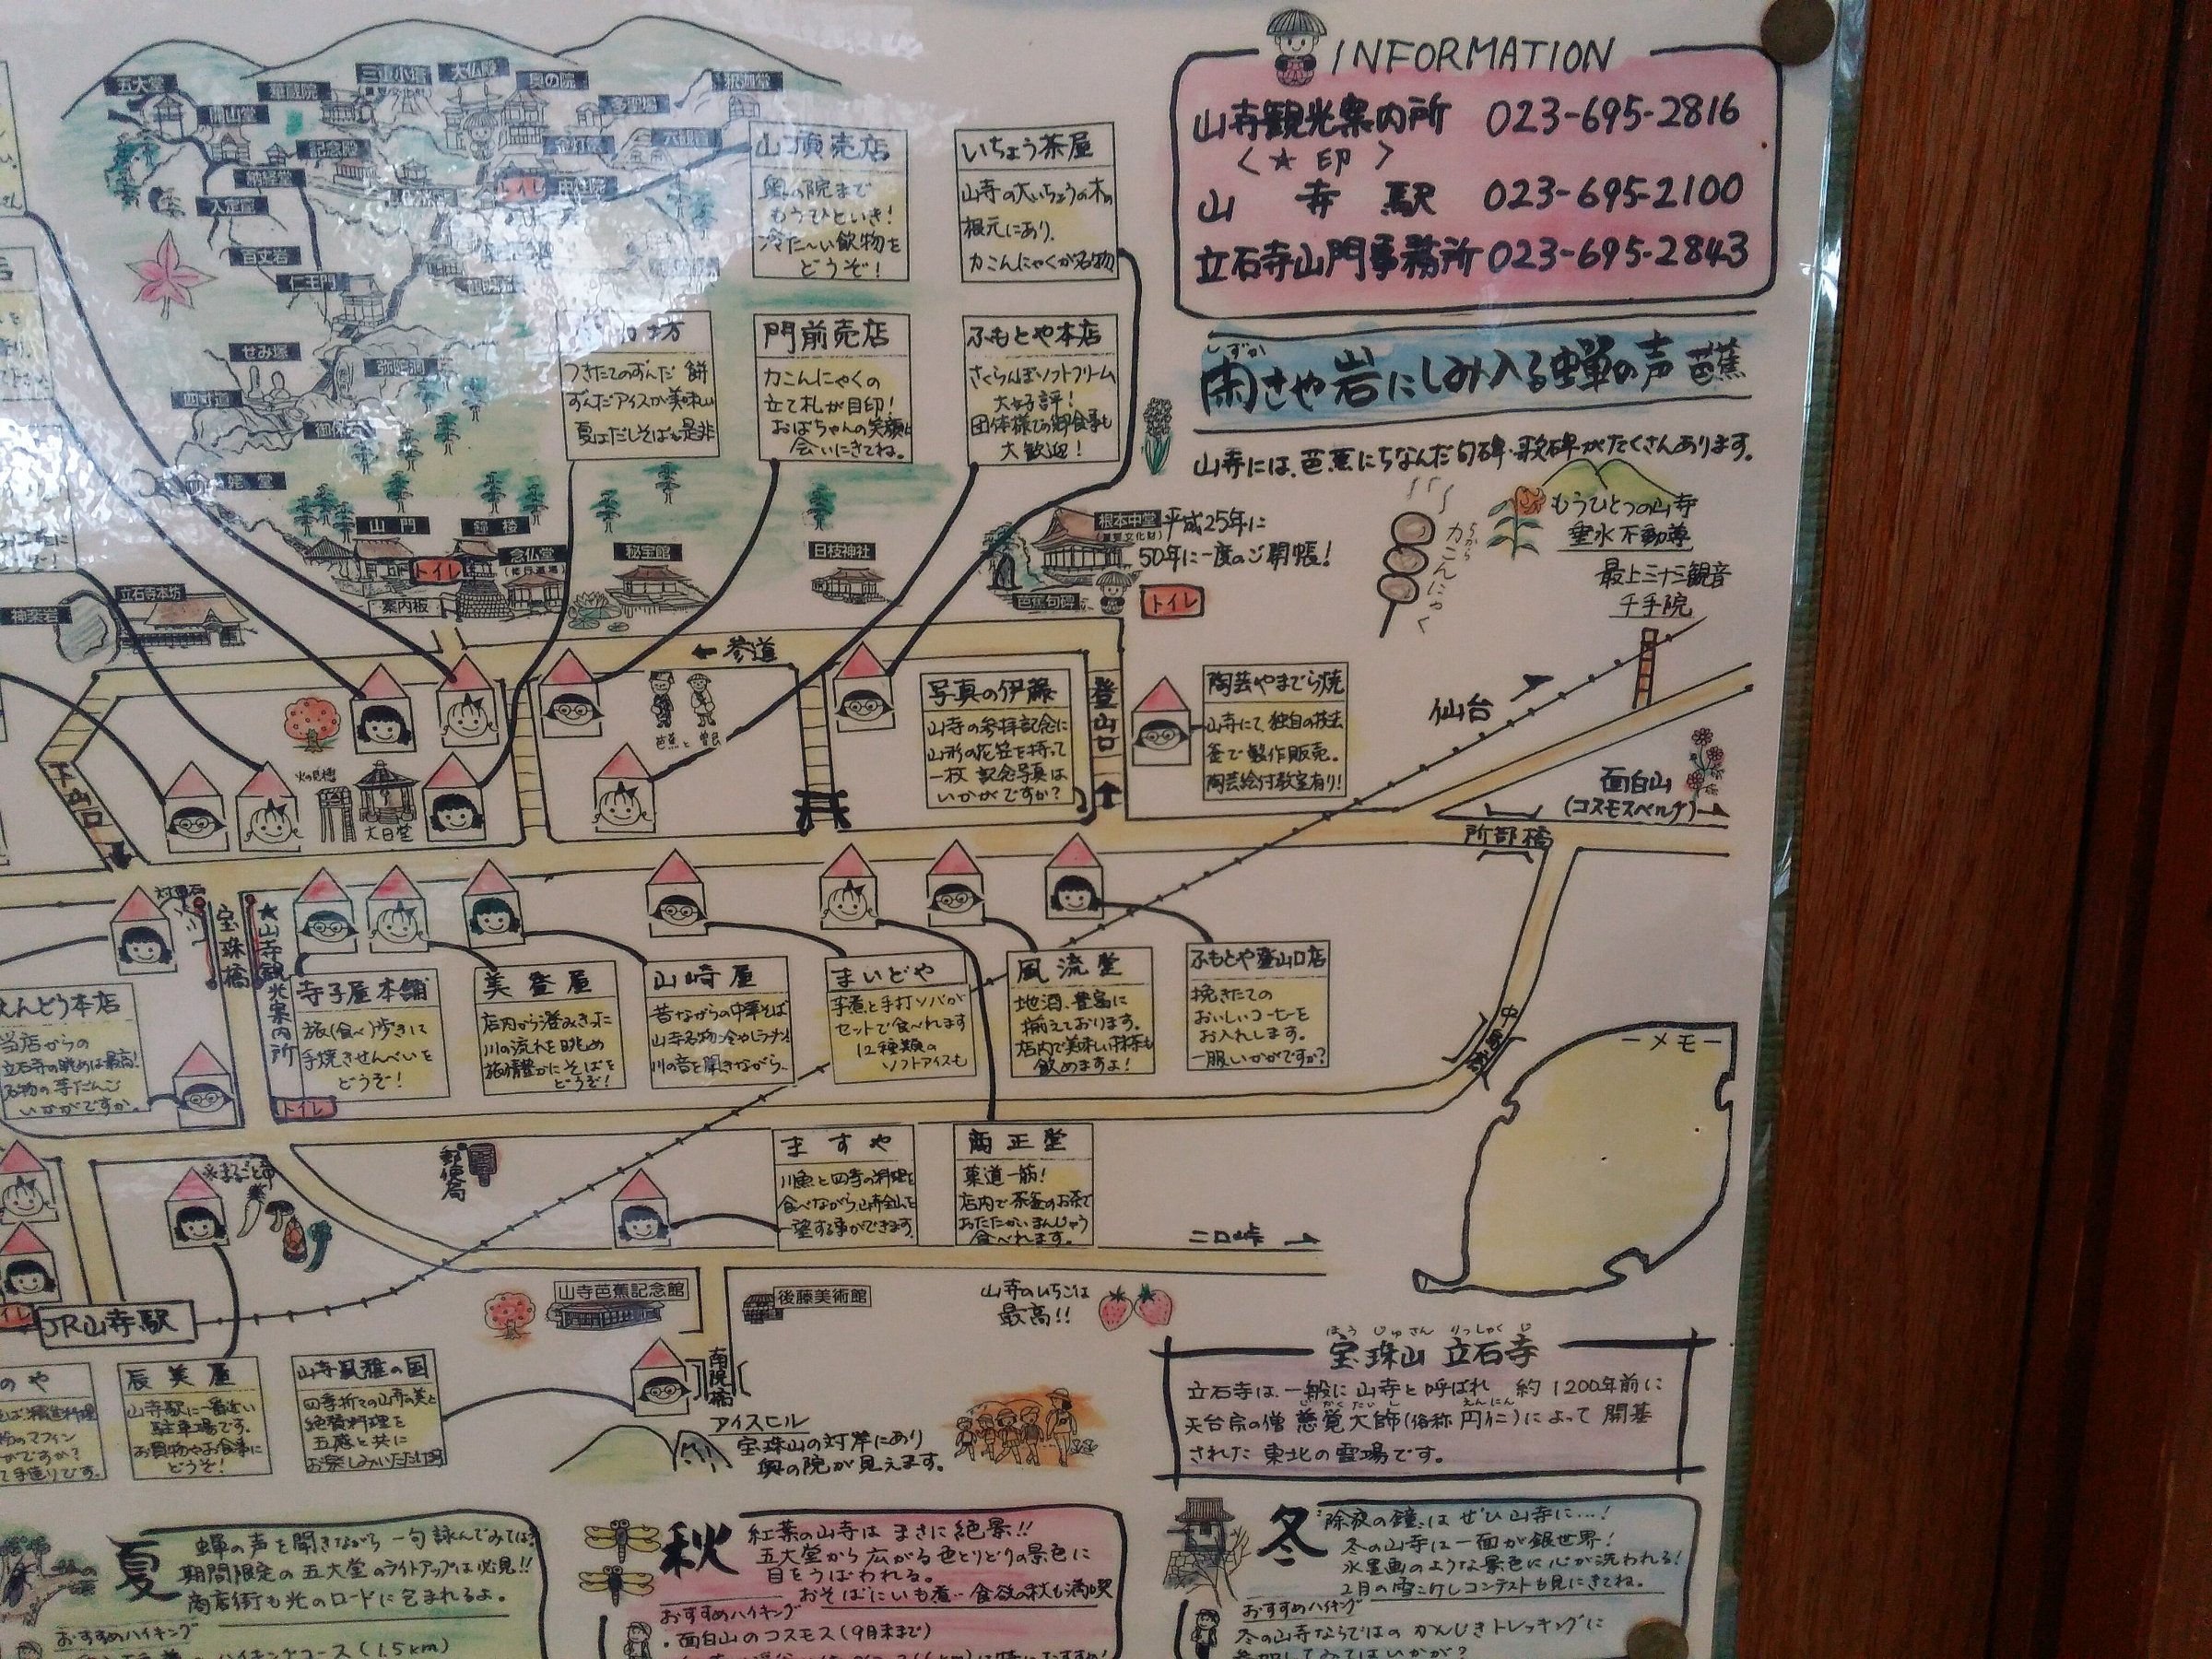 INFORMATION
山寺観光案内所 023-695-2816
<☆印>
山寺駅 023-695-2100
立石寺山門事務所 023-695-2843
しずか
閑さや岩にしみ入る蝉の声 芭蕉
山寺には、芭蕉にちなんだ句碑・歌碑がたくさんあります。
五大堂
開山堂
華蔵院
三重小塔
大仏殿
奥の院
釈迦堂
記念殿
納経堂
トイレ
中性院
入定窟
百丈岩
仁王門
せみ塚
弥陀洞
四寸道
姥堂
山門
鐘楼
トイレ
念仏堂
(修行道場)
案内板
秘宝館
日枝神社
根本中堂
芭蕉句碑
トイレ
平成25年に
50年に一度のご開帳!
立石寺本坊
神楽岩
山頂売店
奥の院まで
もうひといき!
冷た~い飲物を
どうぞ!
いちょう茶屋
山寺の大いちょうの木の
根元にあり。
力こんにゃくが名物
つきたてのずんだ餅
ずんだアイスが美味しい
夏はだしそばも是非
門前売店
力こんにゃくの
立て札が目印!
おばちゃんの笑顔に
会いにきてね。
ふもとや本店
さくらんぼソフトクリーム
大好評!
団体様での御食事も
大歓迎!
ちから
力こんにゃく
もうひとつの山寺
垂水不動尊
最上三十三観音
千手院
←参道
芭蕉と曽良
登山口
下山口
火の見櫓
大日堂
写真の伊藤
山寺の参拝記念に
山形の花笠を持って
一枚 記念写真は
いかがですか?
陶芸やまでら焼
山寺にて、独自の技法
釜で製作販売。
陶芸絵付教室有り!
仙台
面白山
(コスモスベルグ)
所部橋
対面石
宝珠橋
★山寺観光案内所
トイレ
寺子屋本舗
旅(食べ)歩きに
手焼きせんべいを
どうぞ!
美登屋
店内から澄みきった
川の流れを眺め
旅情豊かにそばを
どうぞ!
山崎屋
昔ながらの中華そば
山寺名物冷やしラーメン
川の音を聞きながら、
まいどや
芋煮と手打ソバが
セットで食べれます
12種類の
ソフトアイスも
風流堂
地酒、豊富に
揃えております。
店内で美味しい抹茶も
飲めますよ!
ふもとや登山口店
挽きたての
おいしいコーヒーを
お入れします。
一服いかがですか?
えんどう本店
当店からの
立石寺の眺めは最高!
名物の芋だんご
いかがですか。
ーメモー
郵便局
ますや
川魚と四季の料理を
食べながら、山寺全山を
一望する事ができます。
商正堂
菓道一筋!
店内で茶釜のお茶で
あたたかいまんじゅう
食べれます。
二口峠 →
JR山寺駅
山寺芭蕉記念館
後藤美術館
山寺のいちごは
最高!!
辰美屋
山寺駅に一番近い
駐車場です。
お買物やお食事に
どうぞ!
山寺風雅の国
四季折々の山寺の美と
絶賛料理を
五感と共に
お楽しみいただけます
南院橋
アイスヒル
宝珠山の対岸にあり
奥の院が見えます。
ほうじゅさん りっしゃくじ
宝珠山 立石寺
立石寺は、一般に山寺と呼ばれ 約1200年前に
じかくたいし えんにん
天台宗の僧 慈覚大師(俗称 円仁)によって開基
された 東北の霊場です。
夏
蝉の声を聞きながら一句詠んでみては?
期間限定の五大堂のライトアップは必見!!
商店街も光のロードに包まれるよ。
おすすめハイキング
ハイキングコース(1.5km)
秋
紅葉の山寺は まさに絶景!!
五大堂から広がる色とりどりの景色に
目をうばわれる。
おそばにいも煮…食欲の秋も満喫
おすすめハイキング
・面白山のコスモス(9月末まで)
冬
除夜の鐘は ぜひ山寺に…!
冬の山寺は一面が銀世界!
水墨画のような景色に心が洗われる!
2月の雪こけしコンテストも見にきてね。
おすすめハイキング
冬の山寺ならではの かんじきトレッキングに
参加してみてはいかが?